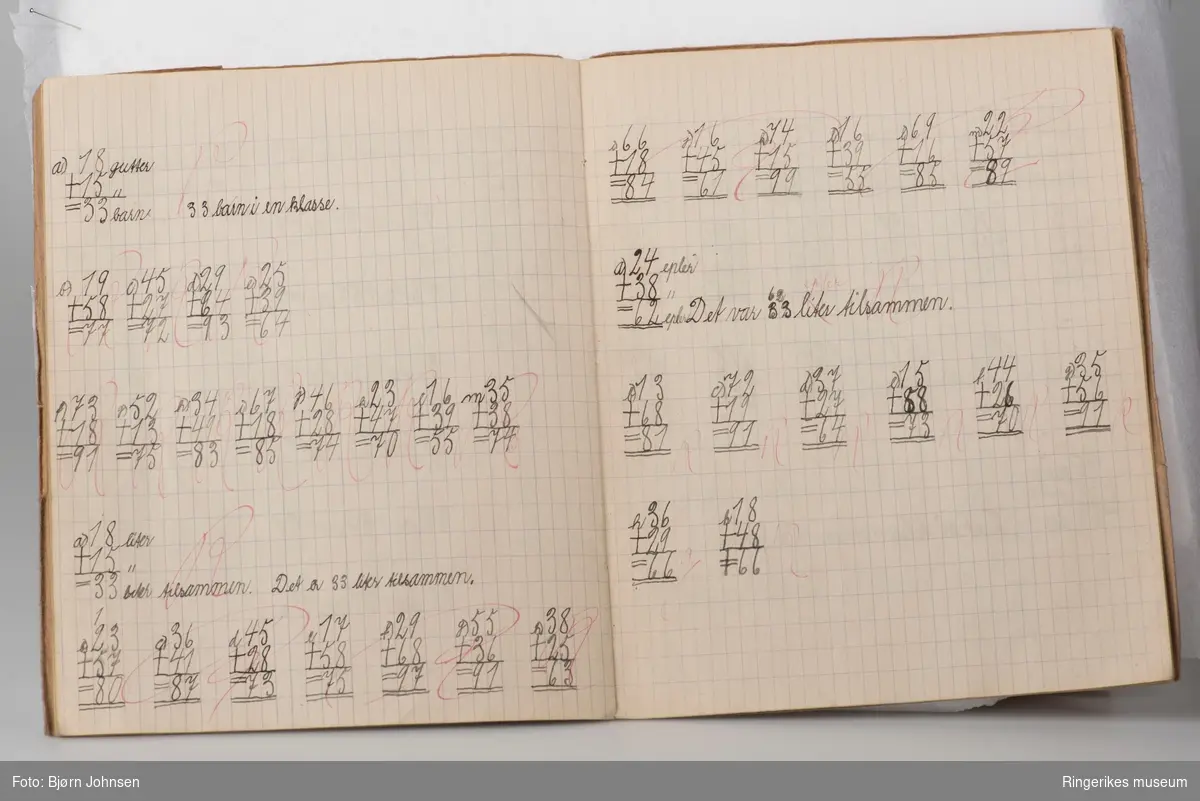 a) 18 gutter
+15 "
=33 barn 33 barn i en klasse.
b) 19 c) 45 d) 29 e) 25
+58 +27 +64 +39
=77 =72 =93 =64
73 52 34 67 46 23 16 m 35
+18 +13 +49 +18 +28 +47 +39 +38
=91 =75 =83 =85 =74 =70 =55 =74
a) 18 liter
+15 "
=33 liter tilsammen. Det er 33 liter tilsammen.
23 36 45 17 29 55 38
+57 +41 +28 +58 +68 +36 +25
=80 =87 =73 =75 =97 =91 =63
66 16 74 16 69 22
+18 +45 +15 +39 +16 +57
=84 =61 =99 =55 =85 =89
a) 24 epler
+38 "
=62 epler Det var 62 liter tilsammen.
13 72 37 15 44 35
+68 +19 +27 +58 +26 +56
=81 =91 =64 =73 =70 =91
36 18
+29 +48
=66 =66
Foto: Bjørn Johnsen
Ringerikes museum